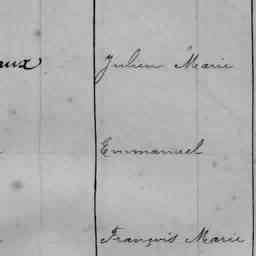 aux Julien Marie
Emmanuel
François Marie